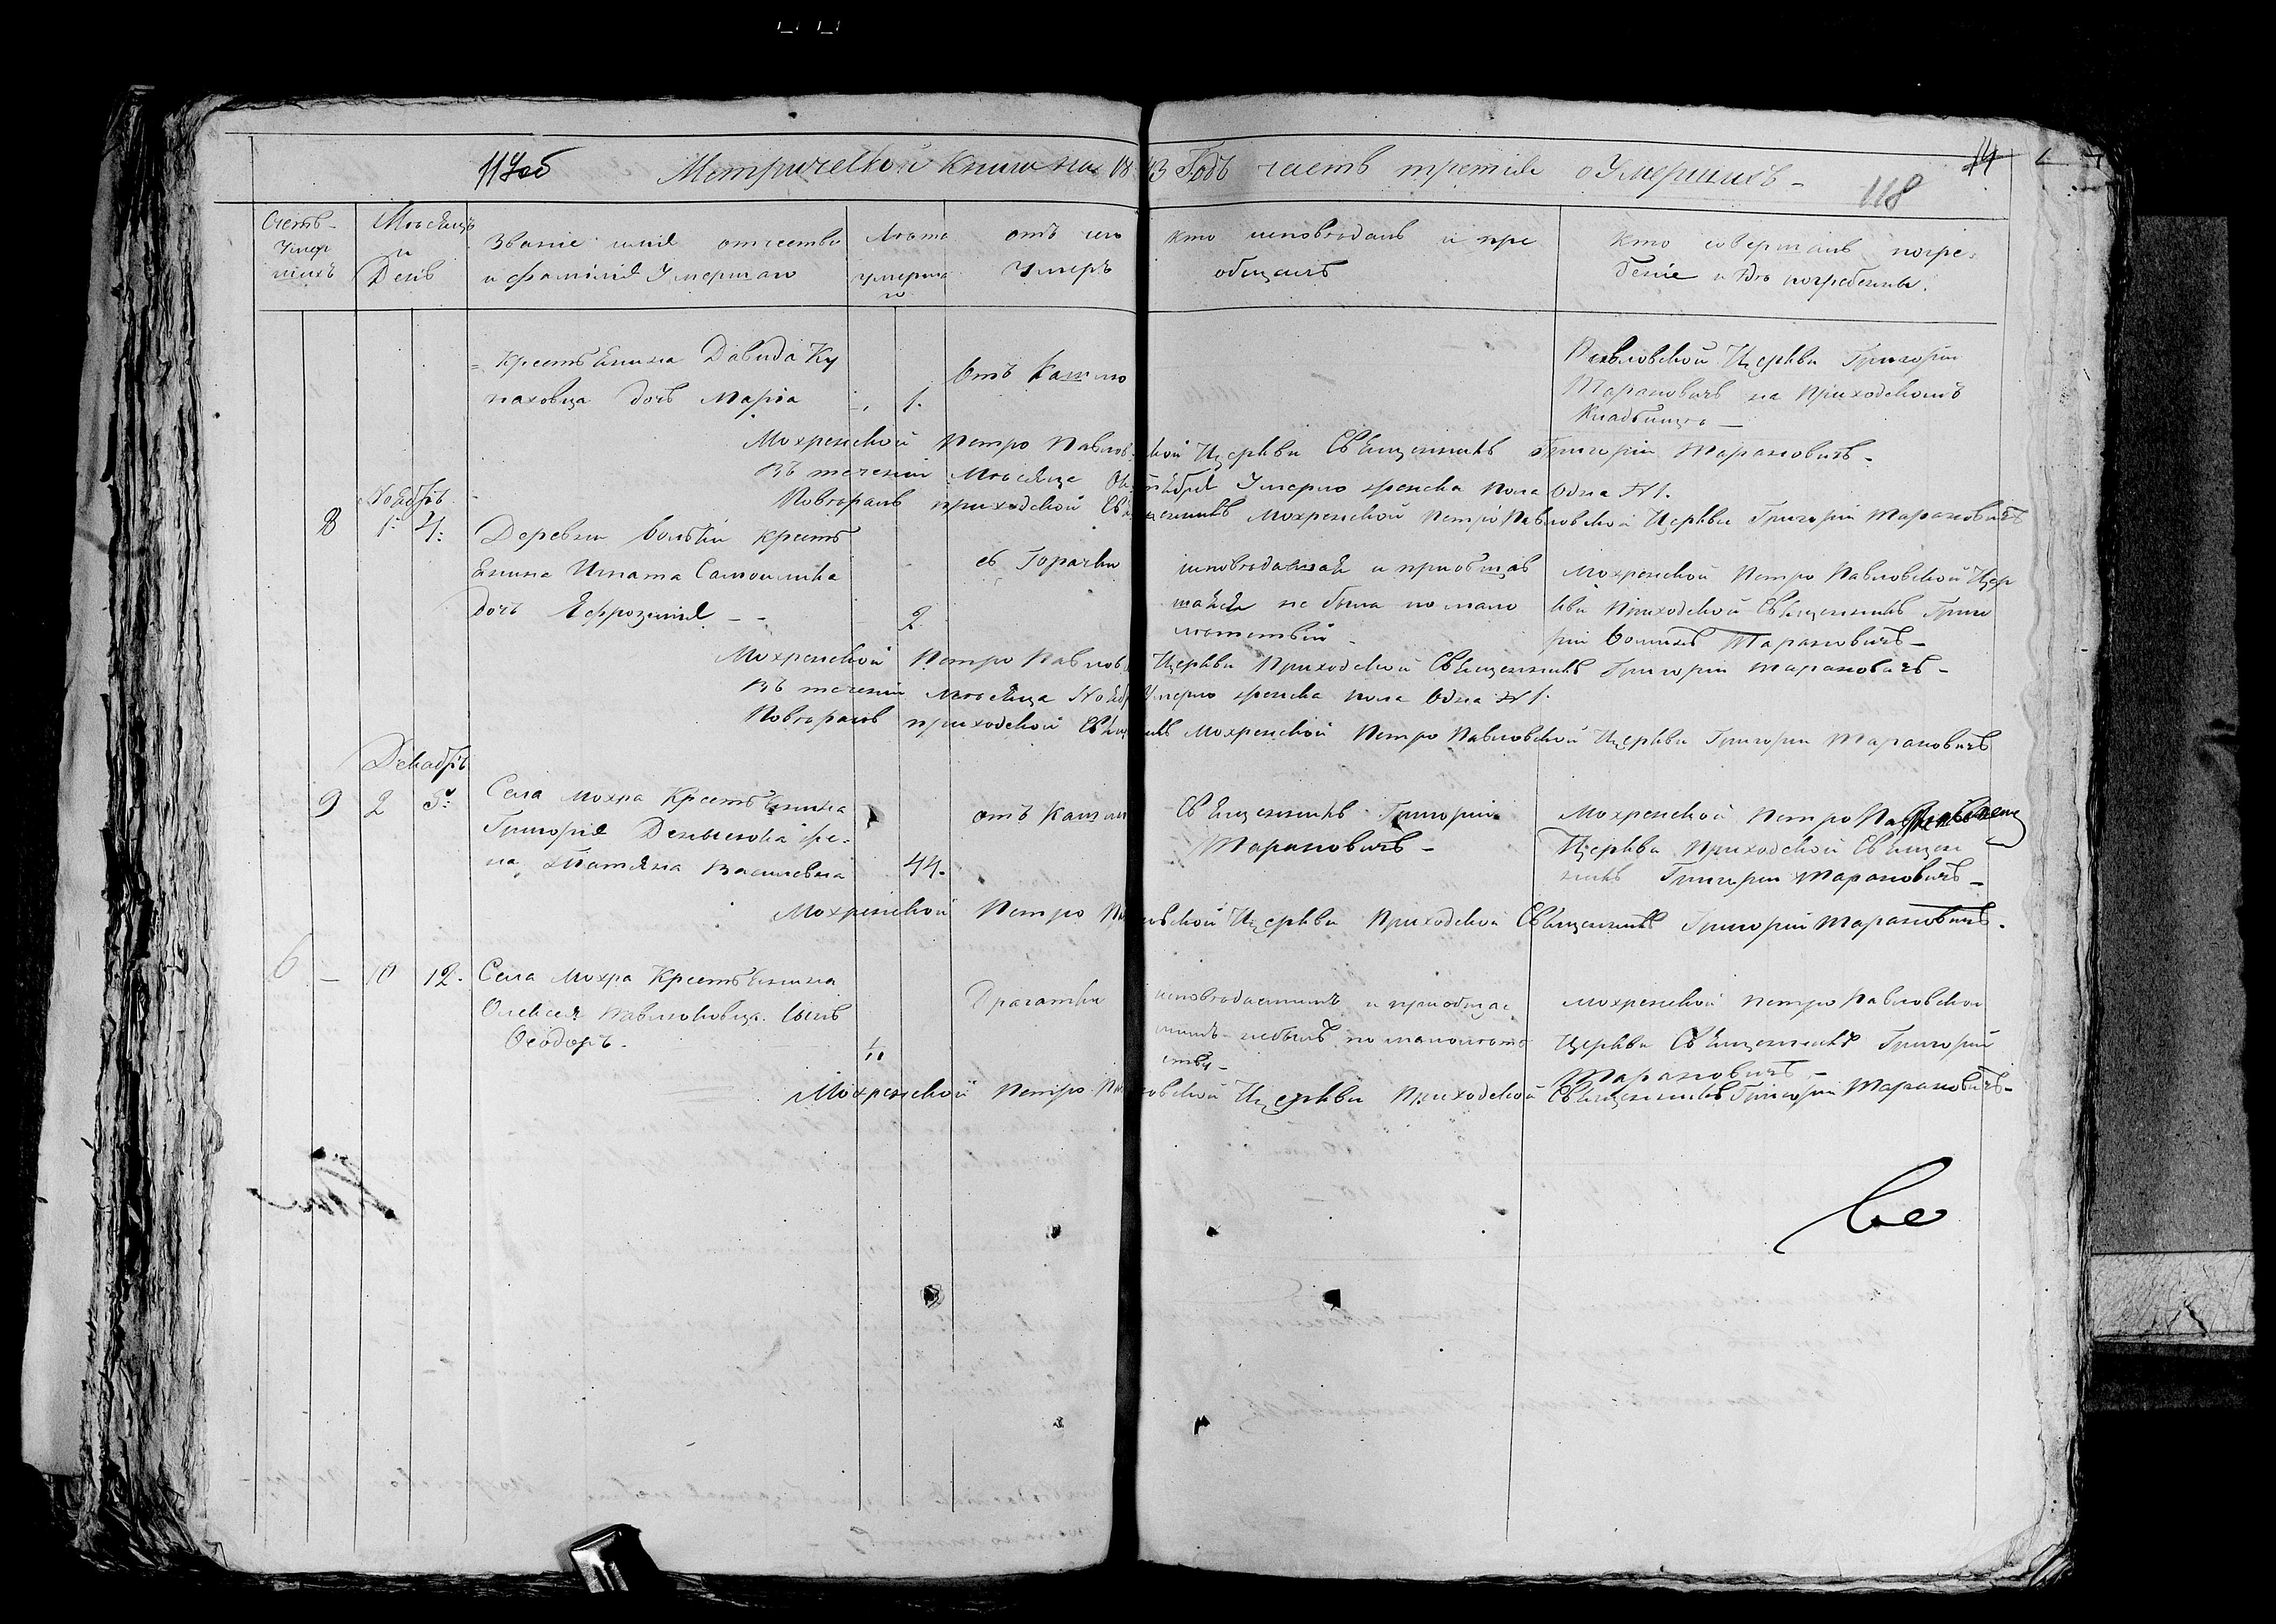 117об Метрической книги на 1843 Годъ часть третія о Умершихъ - 118 14
Счетъ Умер шихъ
Мѣсяцъ и День
Званіе имя отчество и фамилія Умершаго
Лѣта умершаго
отъ чего Умеръ
кто исповѣдалъ и прі
общалъ
Кто совершалъ погре-
беніе и гдѣ погребены.
крестьянина Давида Ку
паховца дочь Марія 1.
Отъ Кашлю
Павловской Церкви Григорій
Тарановичъ на Приходскомъ
Кладбищѣ
Мохренской Петро Павловской Церкви Священникъ Григорій Тарановичъ -
Въ теченіи Мѣсяца Октября Умерло женска пола Одна № 1.
Повѣрялъ приходской Священникъ Мохренской Петро Павловской Церкви Григорій Тарановичъ
Ноябрь
8 1. 4.
Деревни Вольки крест
янина Игната Самоилика
дочь Ефрозинія - - 2
съ Горачки
исповѣдана и приобщав
не была по мало
лѣтствію
Мохренской Петро Павловской Цер
кви Приходской Священникъ Григо
рій Тарановичъ -
Мохренской Петро Павлов Церкви Приходской Священникъ Григорій Тарановичъ -
Въ теченіи Мѣсяца Ноября Умерло женска пола Одна № 1.
Повѣрялъ приходской Священникъ Мохренской Петро Павловской Церкви Григорій Тарановичъ
Декабрь
9 2 5.
Села Мохра Крестьянина
Григорія Денисюка же-
на Татяна Василевна 44.
отъ Кашлю
Священникъ Григорій
Тарановичъ -
Мохренской Петро
Церкви Приходской Священ
никъ Григорій Тарановичъ -
Мохренской Петро Павловской Церкви Приходской Священникъ Григорій Тарановичъ.
6 - 10 12.
Села Мохра Крестьянина
Олексея Павлюковца сынъ
Ѳеодоръ. 1/11
исповѣданнымъ и приобща
не былъ по малолѣт
ству -
Мохренской Петро Павловской
Церкви Священникъ Григорій
Тарановичъ -
Мохренской Петро Павловской Церкви Приходской Священникъ Григорій Тарановичъ -